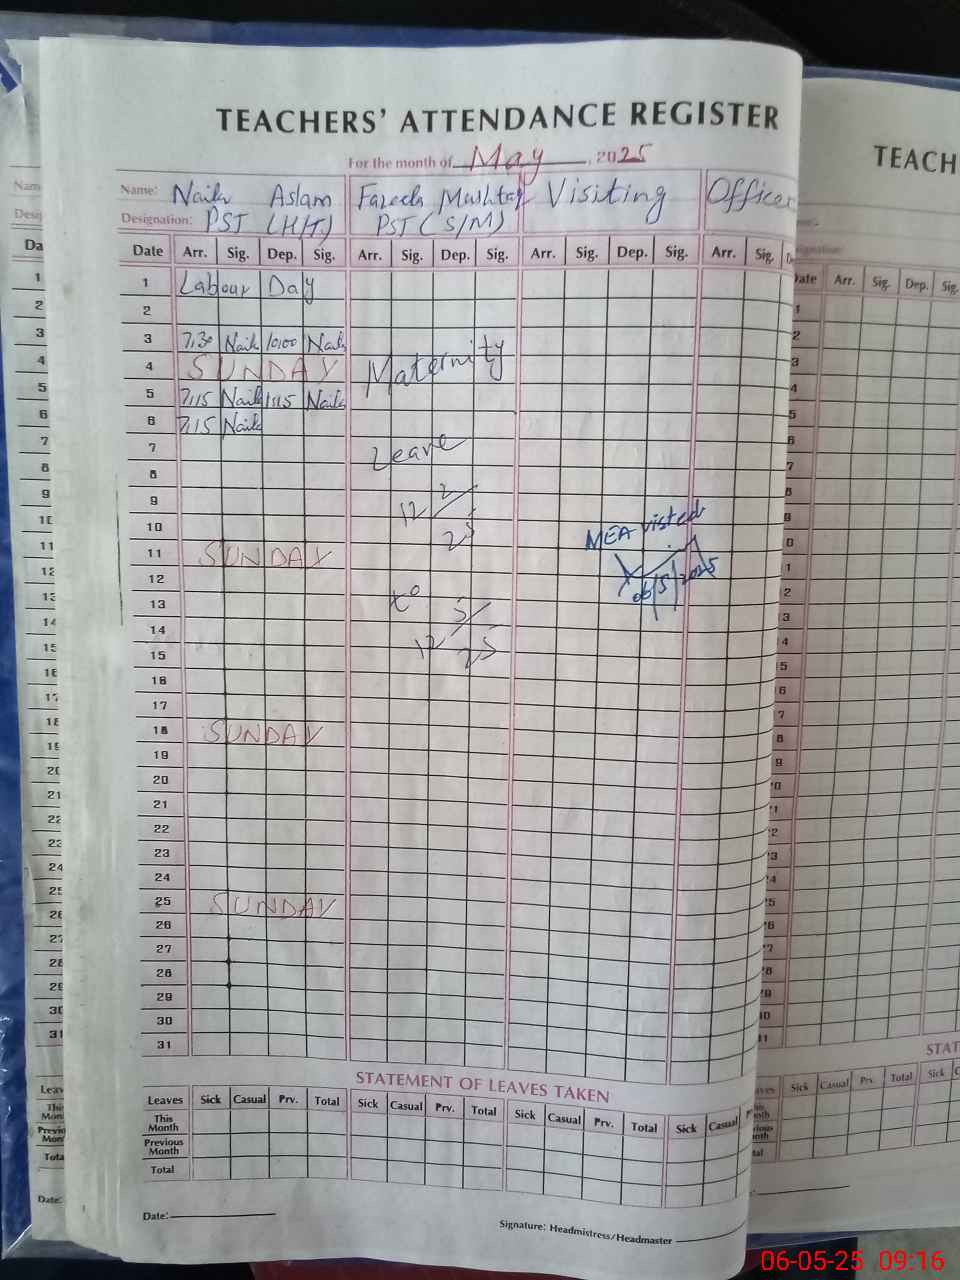 TEACHERS' ATTENDANCE REGISTER
For the month of May, 2025
Name: Naila Aslam Fareeda Mushtaq Visiting Officer
Designation: PST (H/T) PST (S/M)
Date Arr. Sig. Dep. Sig. Arr. Sig. Dep. Sig. Arr. Sig. Dep. Sig. Arr. Sig.
1 Labour Day
2
3 7:30 Naila 10:00 Naila
4 SUNDAY Maternity
5 7:15 Naila 1:15 Naila
6 7:15 Naila
7 Leave
8
9 12/2/25
10 MEA visted
11 SUNDAY
12 06/5/2025
13 to
14 12/5/25
15
16
17
18 SUNDAY
19
20
21
22
23
24
25 SUNDAY
26
27
28
29
30
31
STATEMENT OF LEAVES TAKEN
Leaves Sick Casual Prv. Total Sick Casual Prv. Total Sick Casual Prv. Total Sick Casual
This Month
Previous Month
Total
Date:
Signature: Headmistress/Headmaster
TEACH
Date Arr. Sig. Dep. Sig.
STAT
Sick Casual Prv. Total Sick
06-05-25 09:16